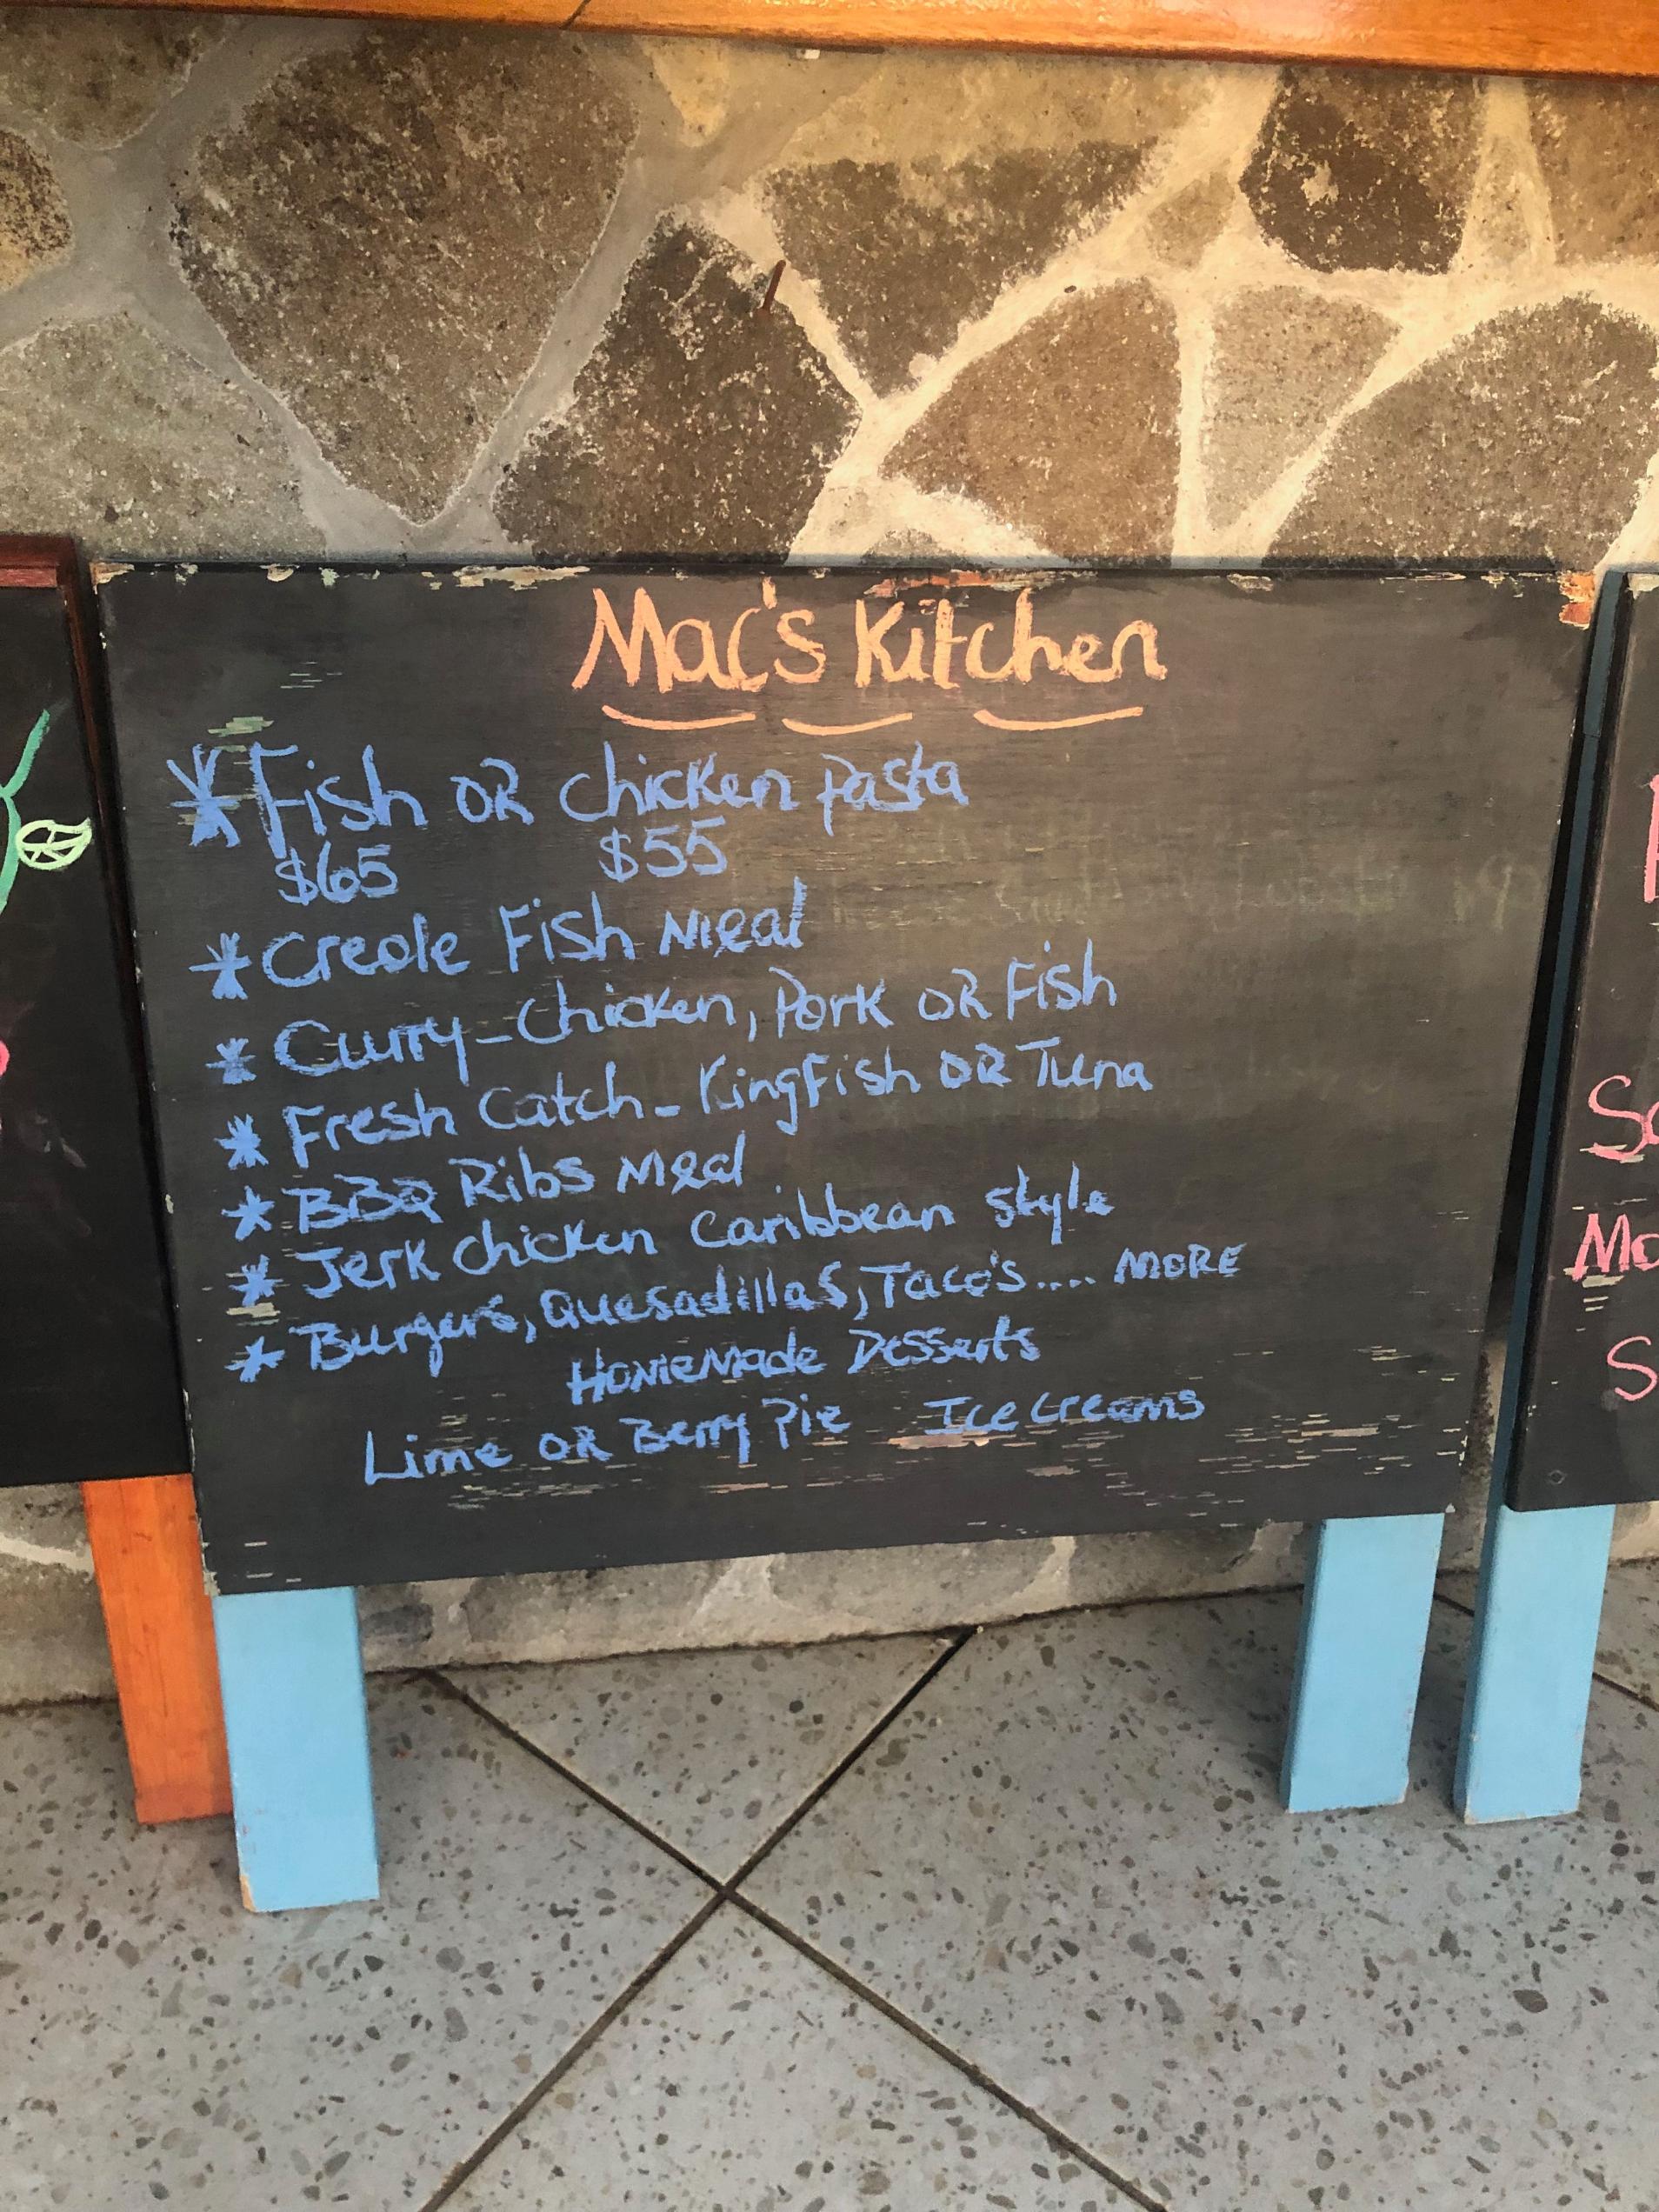 Mac's Kitchen
* Fish OR Chicken Pasta
$65 $55
* Creole Fish Meal
* Curry - Chicken, Pork OR Fish
* Fresh Catch - Kingfish OR Tuna
* BBQ Ribs Meal
* Jerk Chicken Caribbean Style
* Burgers, Quesadillas, Taco's.... MORE
Homemade Desserts
Lime OR Berry Pie Ice Creams